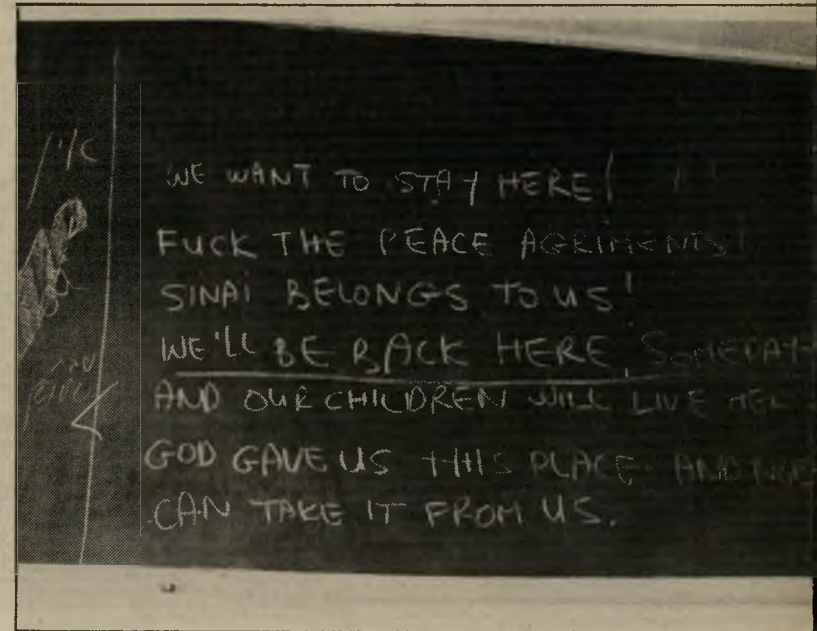 WE WANT TO STAY HERE!
FUCK THE PEACE AGRIMENTS!
SINAI BELONGS TO US!
WE'LL BE BACK HERE, SOMEDAY
AND OUR CHILDREN WILL LIVE
GOD GAVE US THIS PLACE AND
CAN TAKE IT FROM US.